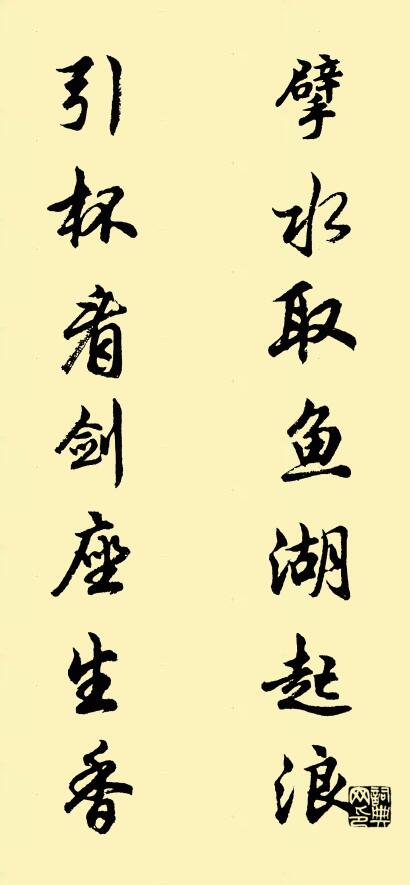 擘水取鱼湖起浪
引杯看剑座生香
詞典网